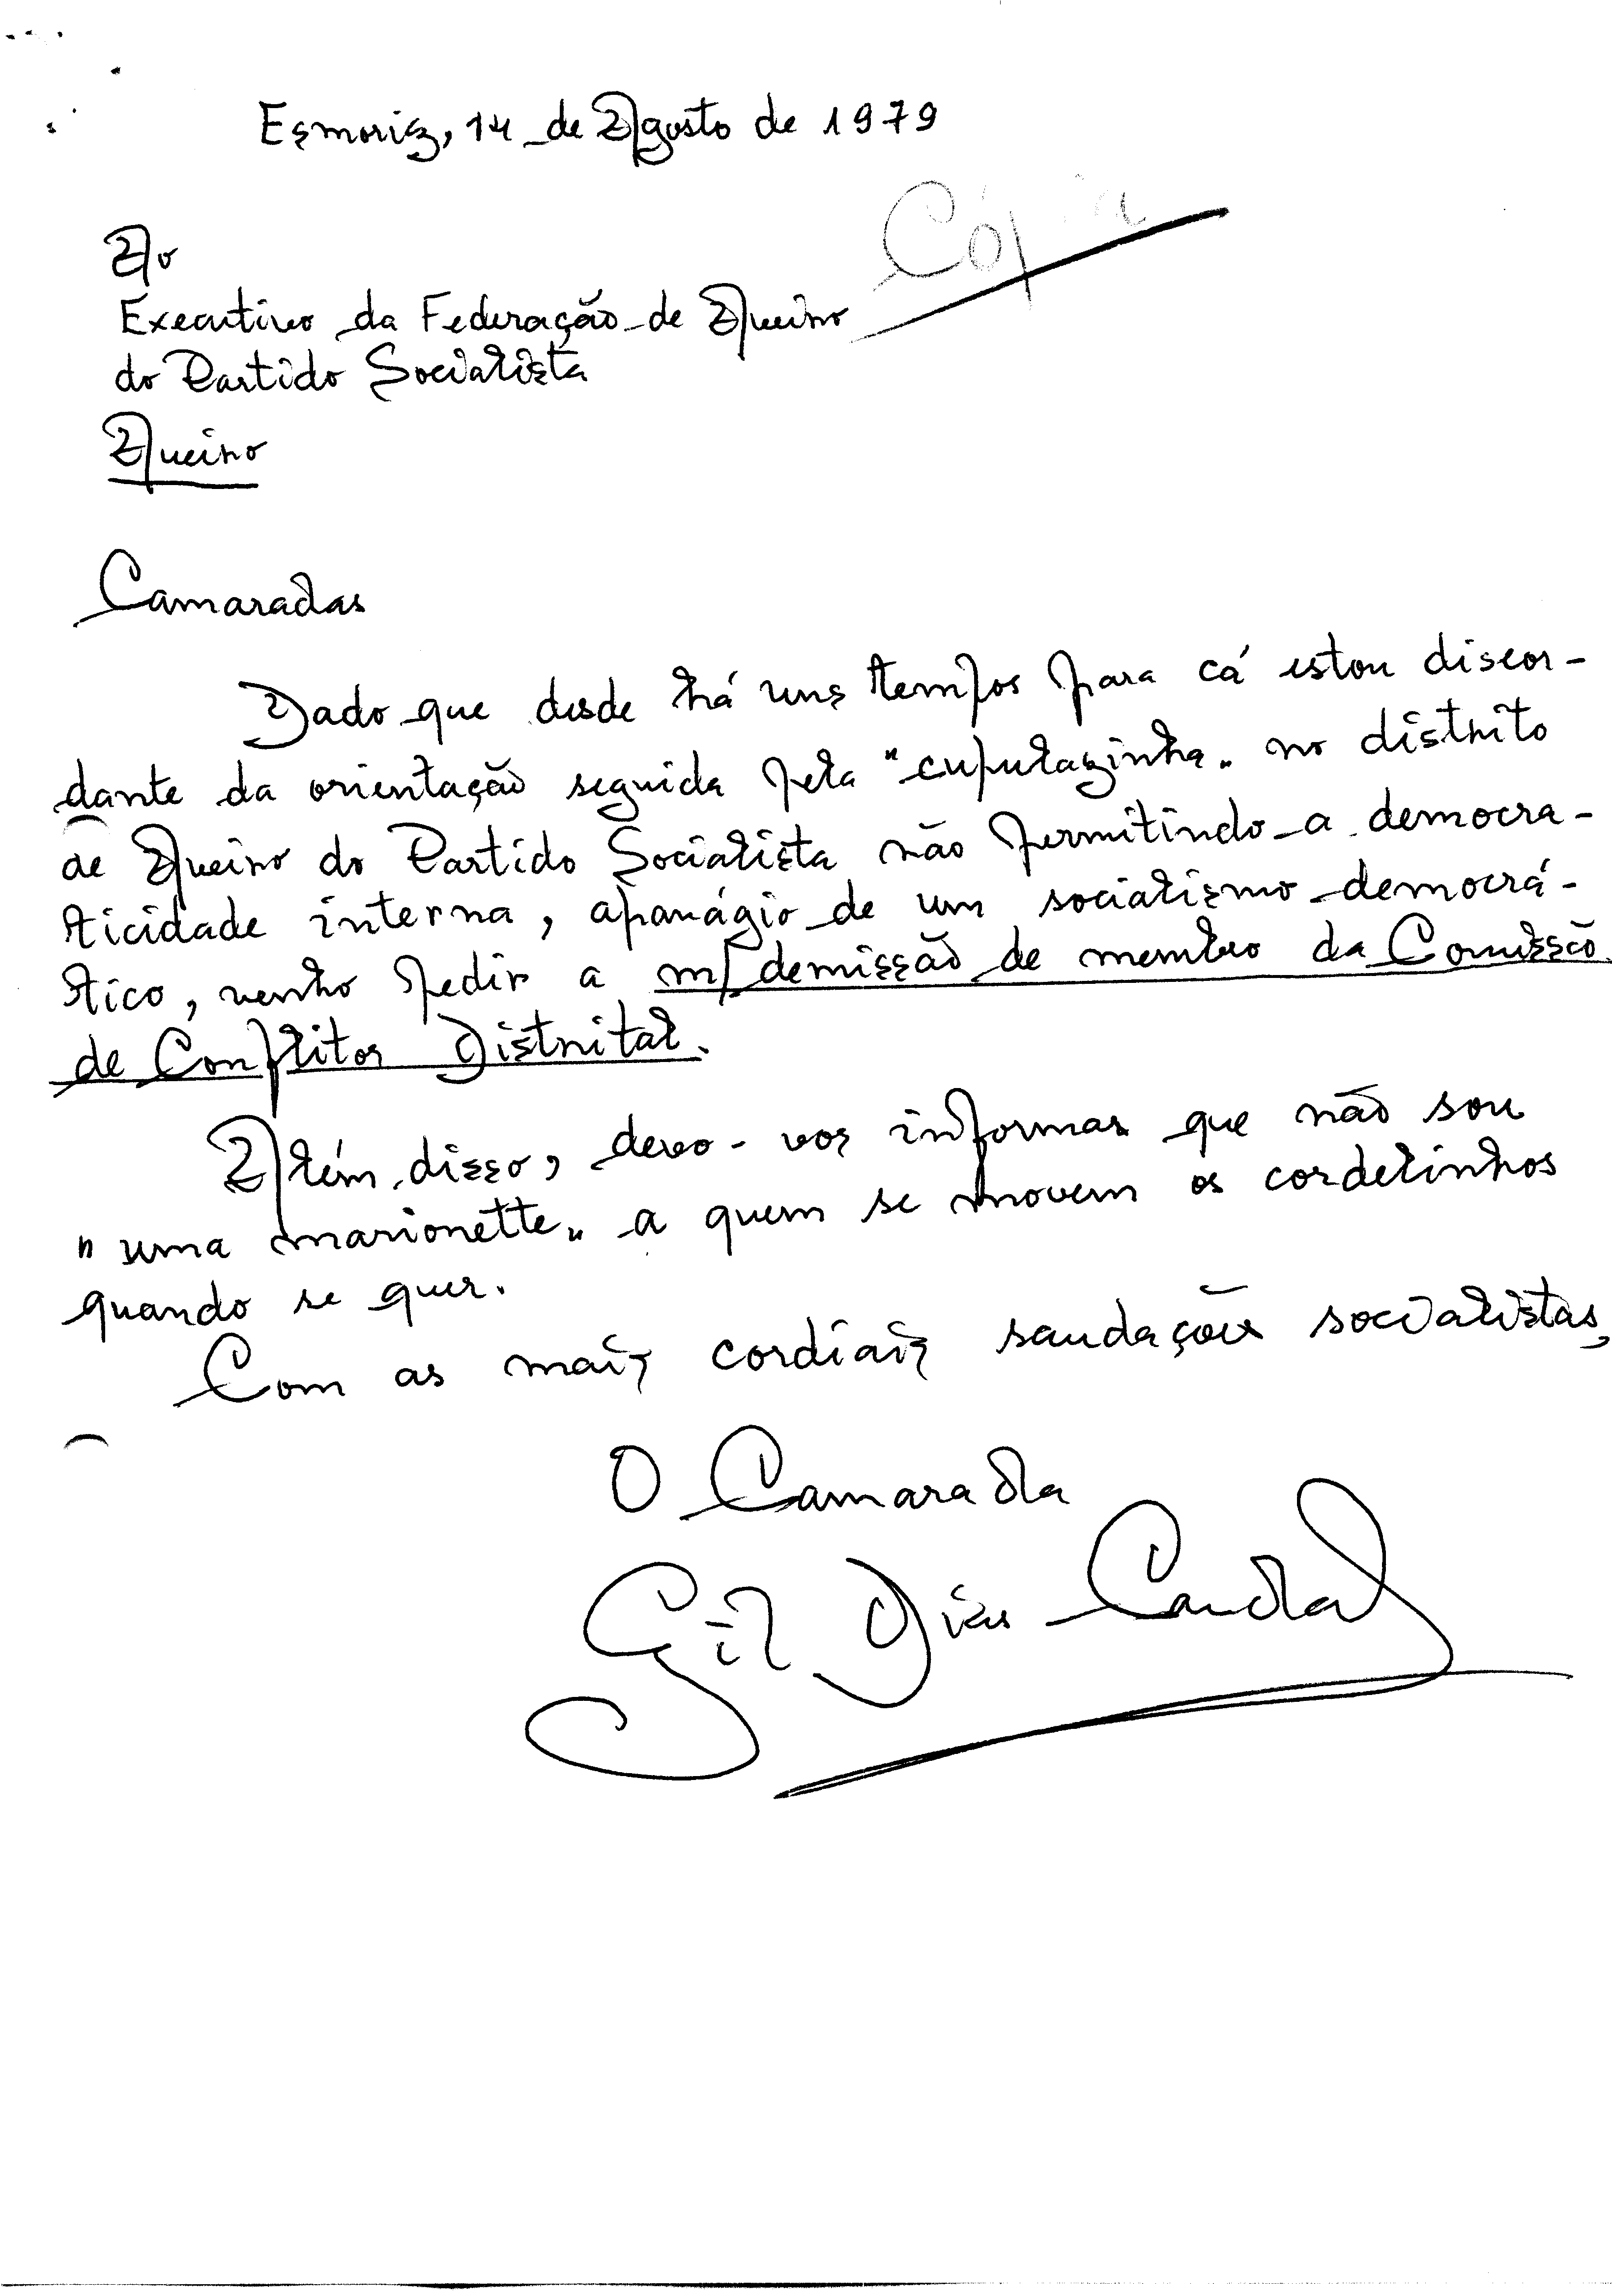 Esmoriz, 14 de Agosto de 1979
Cópia
Ao
Executivo da Federação de Aveiro
do Partido Socialista
Aveiro
Camaradas
Dado que desde há uns tempos para cá estou discor-
dante da orientação seguida pela "cupulazinha" no distrito
de Aveiro do Partido Socialista não permitindo a democra-
ticidade interna, apanágio de um socialismo democrá-
tico, venho pedir a m/ demissão de membro da Comissão
de Conflitos Distrital.
Além disso, devo-vos informar que não sou
"uma marionette" a quem se movem os cordelinhos
quando se quer.
Com as mais cordiais saudações socialistas,
O Camarada
Gil Dias Candal